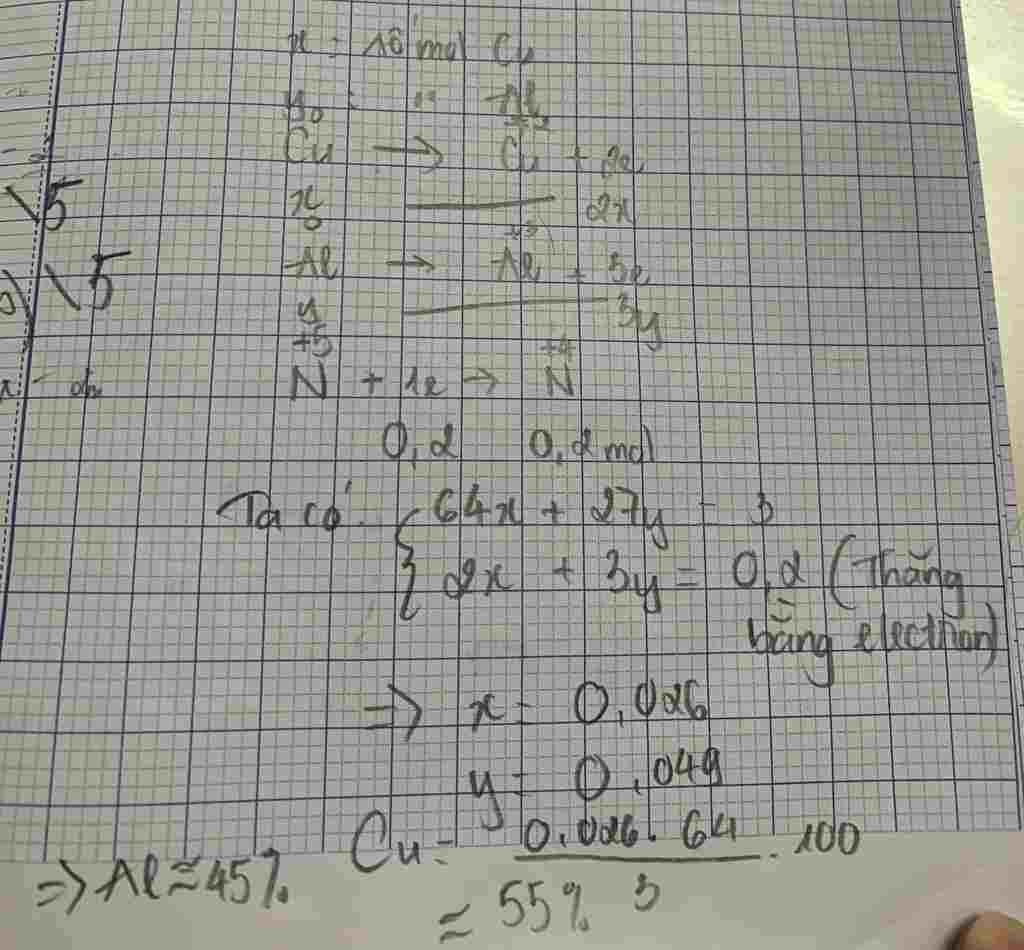 x : số mol Cu
y : " Al
Cu⁰ → Cu⁺² + 2e
x 2x
Al⁰ → Al⁺³ + 3e
y 3y
N⁺⁵ + 1e → N⁺⁴
0,2 0,2 mol
Ta có: { 64x + 27y = 3
2x + 3y = 0,2 (Thăng
bằng electron)
=> x = 0,026
y = 0,049
Cu = 0,026 . 64 / 3 . 100
≈ 55%
=> Al ≈ 45%